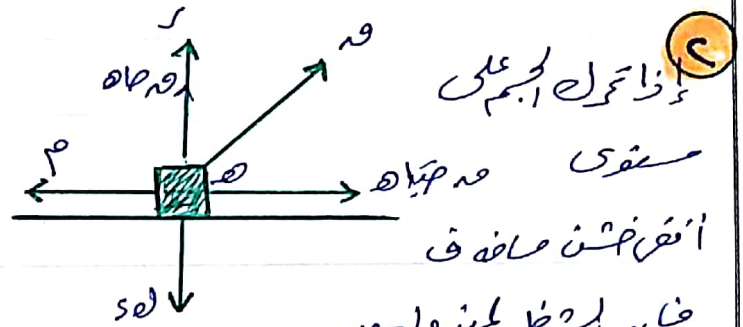 ٢
إذا تحرك الجسم على
مستوى
أفقى خشن مسافة ف
ر
ق
ق حاهـ
م
هـ
ق حتاهـ